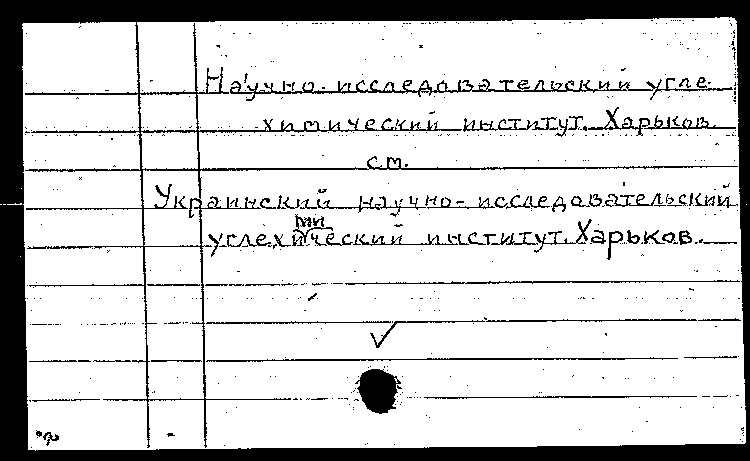 Научно-исследовательский угле-
химический институт. Харьков.
см.
Украинский научно-исследовательский
углехимический институт. Харьков.